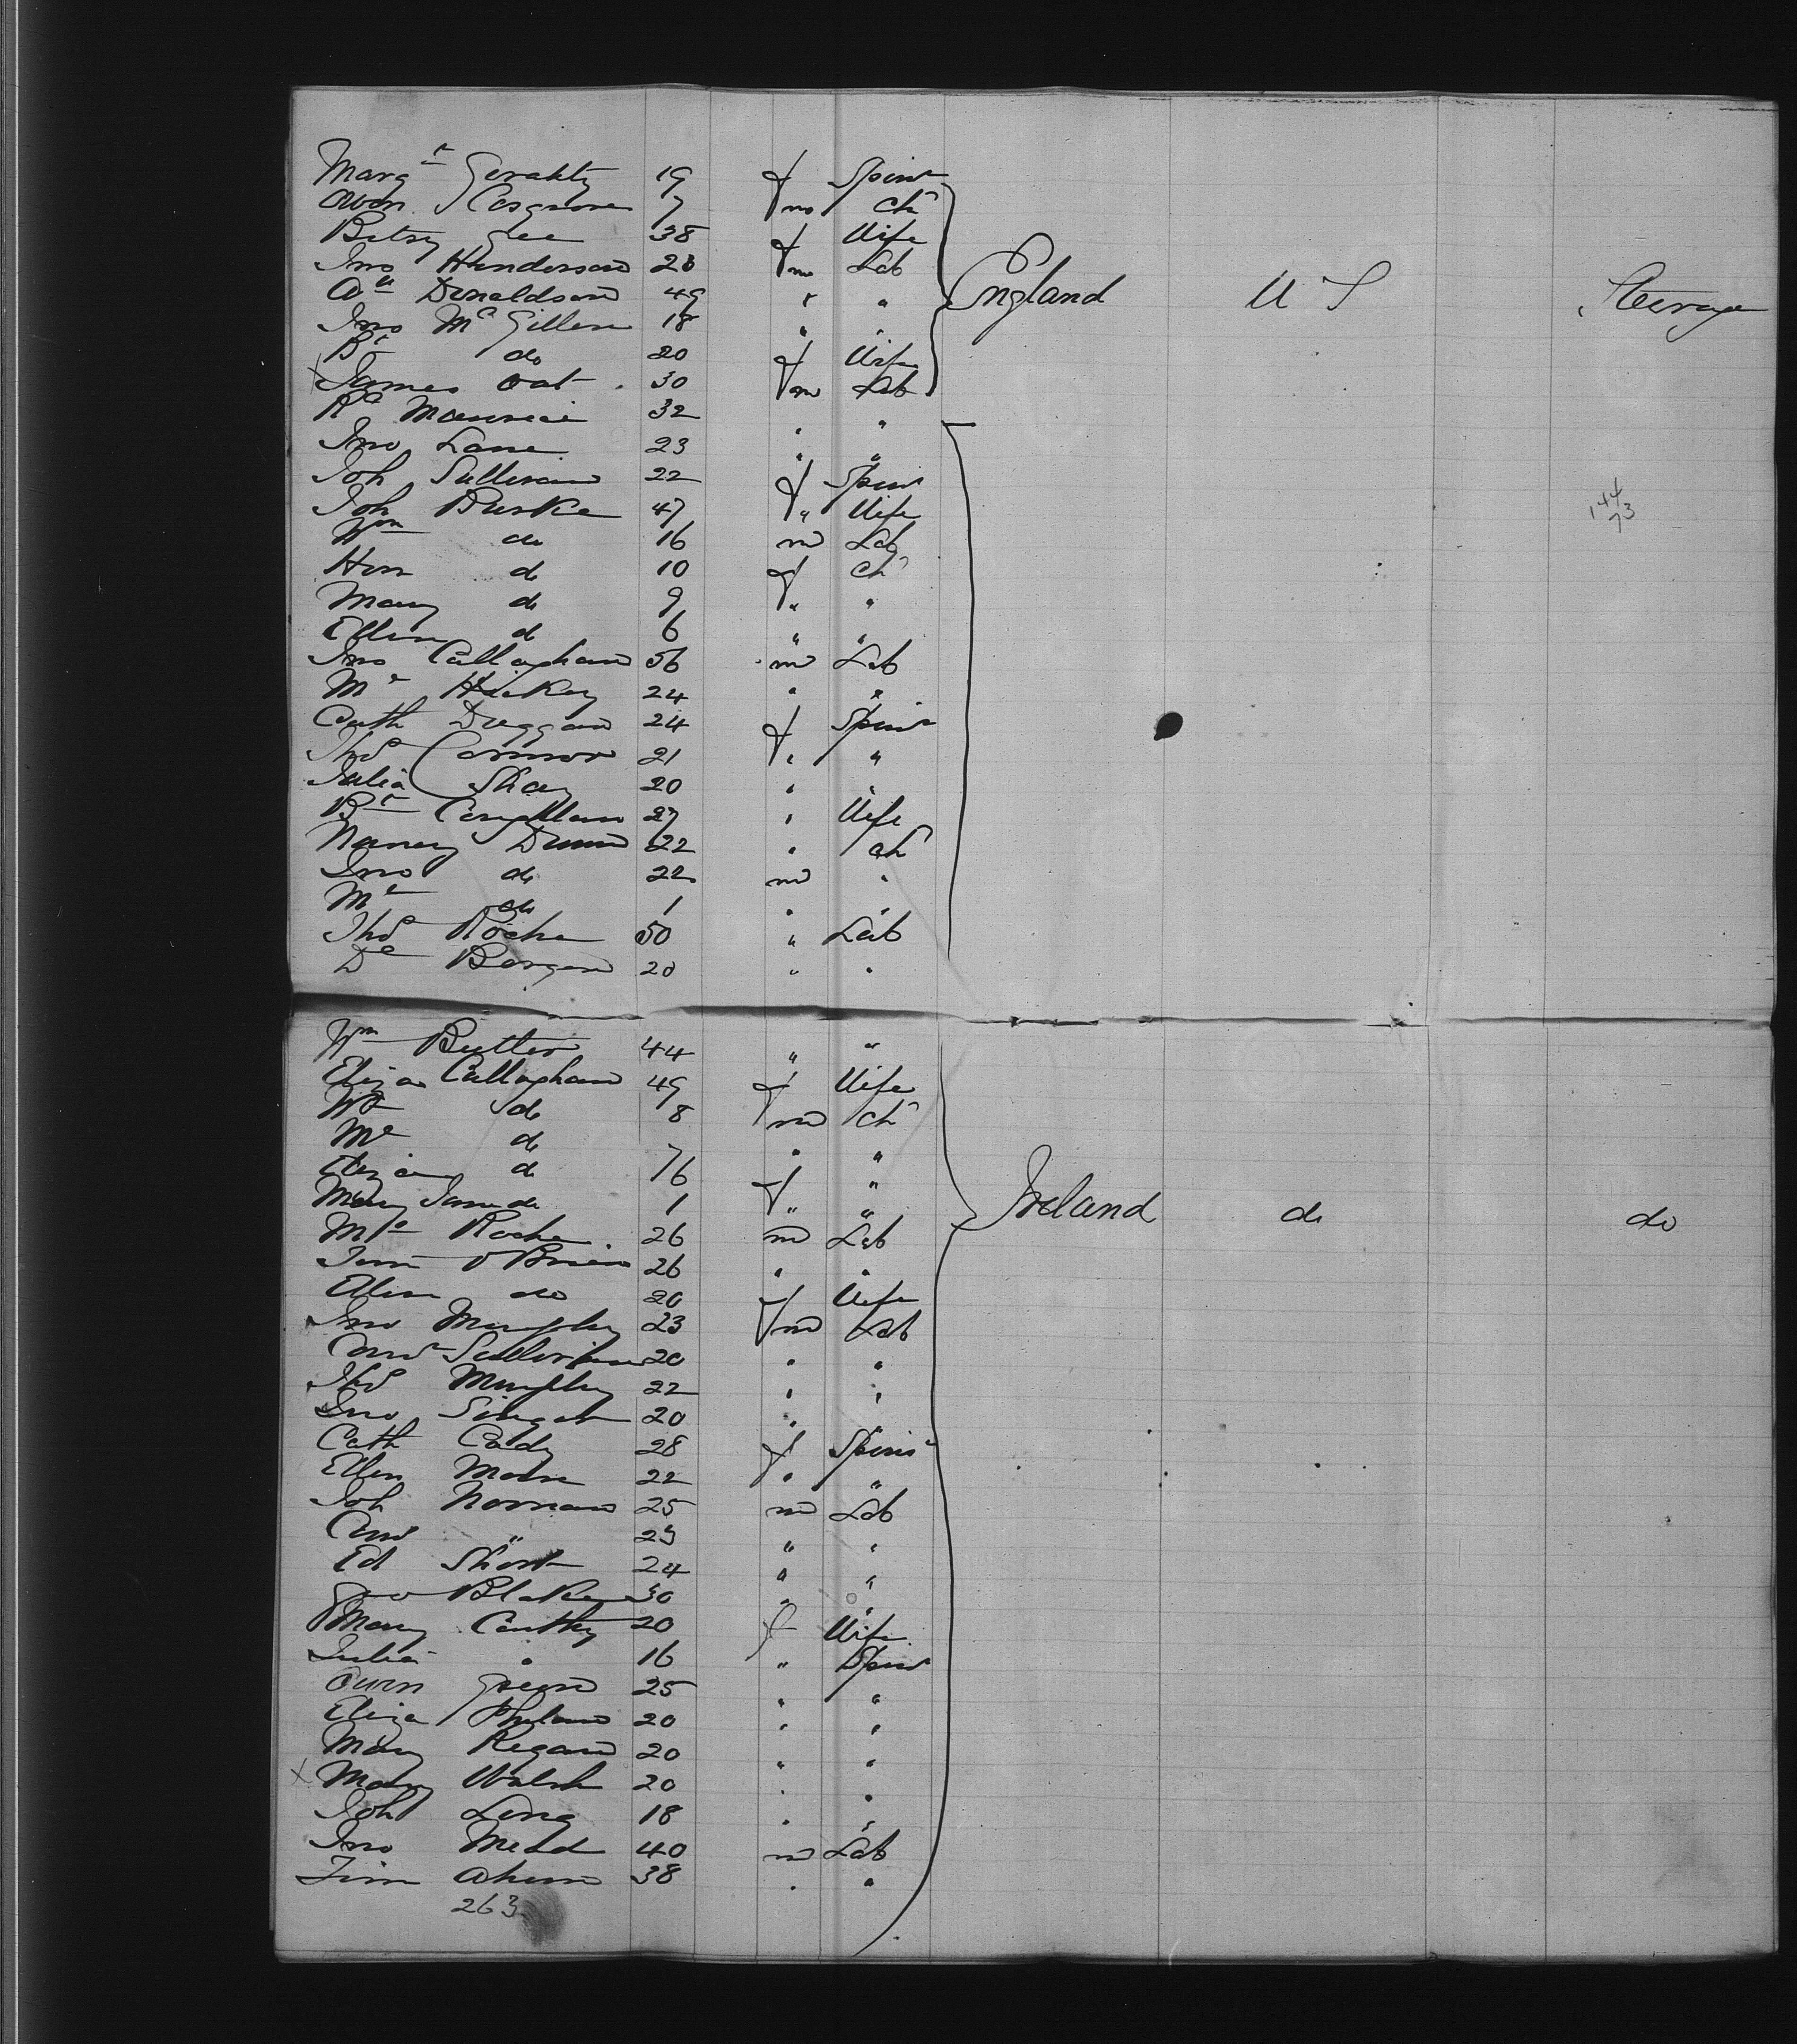 Margt Gerahty 19 f Spinr
Owen Cosgrove 7 m Ch
Betsy Gee 38 f Wife
Jno Henderson 23 m Lab England U S Steerage
Donaldson 49 " "
Jno McGillen 18 "
Bt do 20 f Wife
James Oat 30 m Lab
Rd 32 " "
Jno Lane 23 " "
Joh Sullivan 22 f Spinr
Joh Burke 47 " Wife
Wm do 16 m Lab
Hon do 10 f Ch
Mary do 9 " "
Ellen do 6 " "
Jno Callaghan 56 m Lab
Ml Hickey 24 " "
Cath Duggan 24 f Spinr
Thos Connor 21 " "
Julia Shay 20 " "
Bt Coughlan 27 " Wife
Nancy Dunn 22 " Ch
Jno do 22 m "
Ml do 1 " "
Thos Roche 50 " Lab
Dl Bergen 20 " "
144
73
Wm Butler 44 " "
Eliza Callaghan 49 f Wife
Wm do 8 m Ch
Ml do " "
Eliza do 76 f "
Mary Jane do 1 " " Ireland do do
Ml Roche 26 m Lab
Jim O Brien 26 " "
Ellen do 20 f Wife
Jno Murphy 23 m Lab
Sullivan 20 " "
Thos Murphy 22 " "
Jno 20 "
Cath Cody 28 f Spinr
Ellen Moore 22 " "
Joh Norman 25 m Lab
" 23 " "
Ed Short 24 " "
Geo Blake 30 " "
Mary Carthy 20 f Wife
Julia " 16 " Spinr
Owen Green 25 " "
Eliza Phelan 20 " "
Mary Regan 20 " "
x Mary Walsh 20 " "
Joh Long 18 " "
Jno Mead 40 m Lab
Tim Ahern 38 " "
263